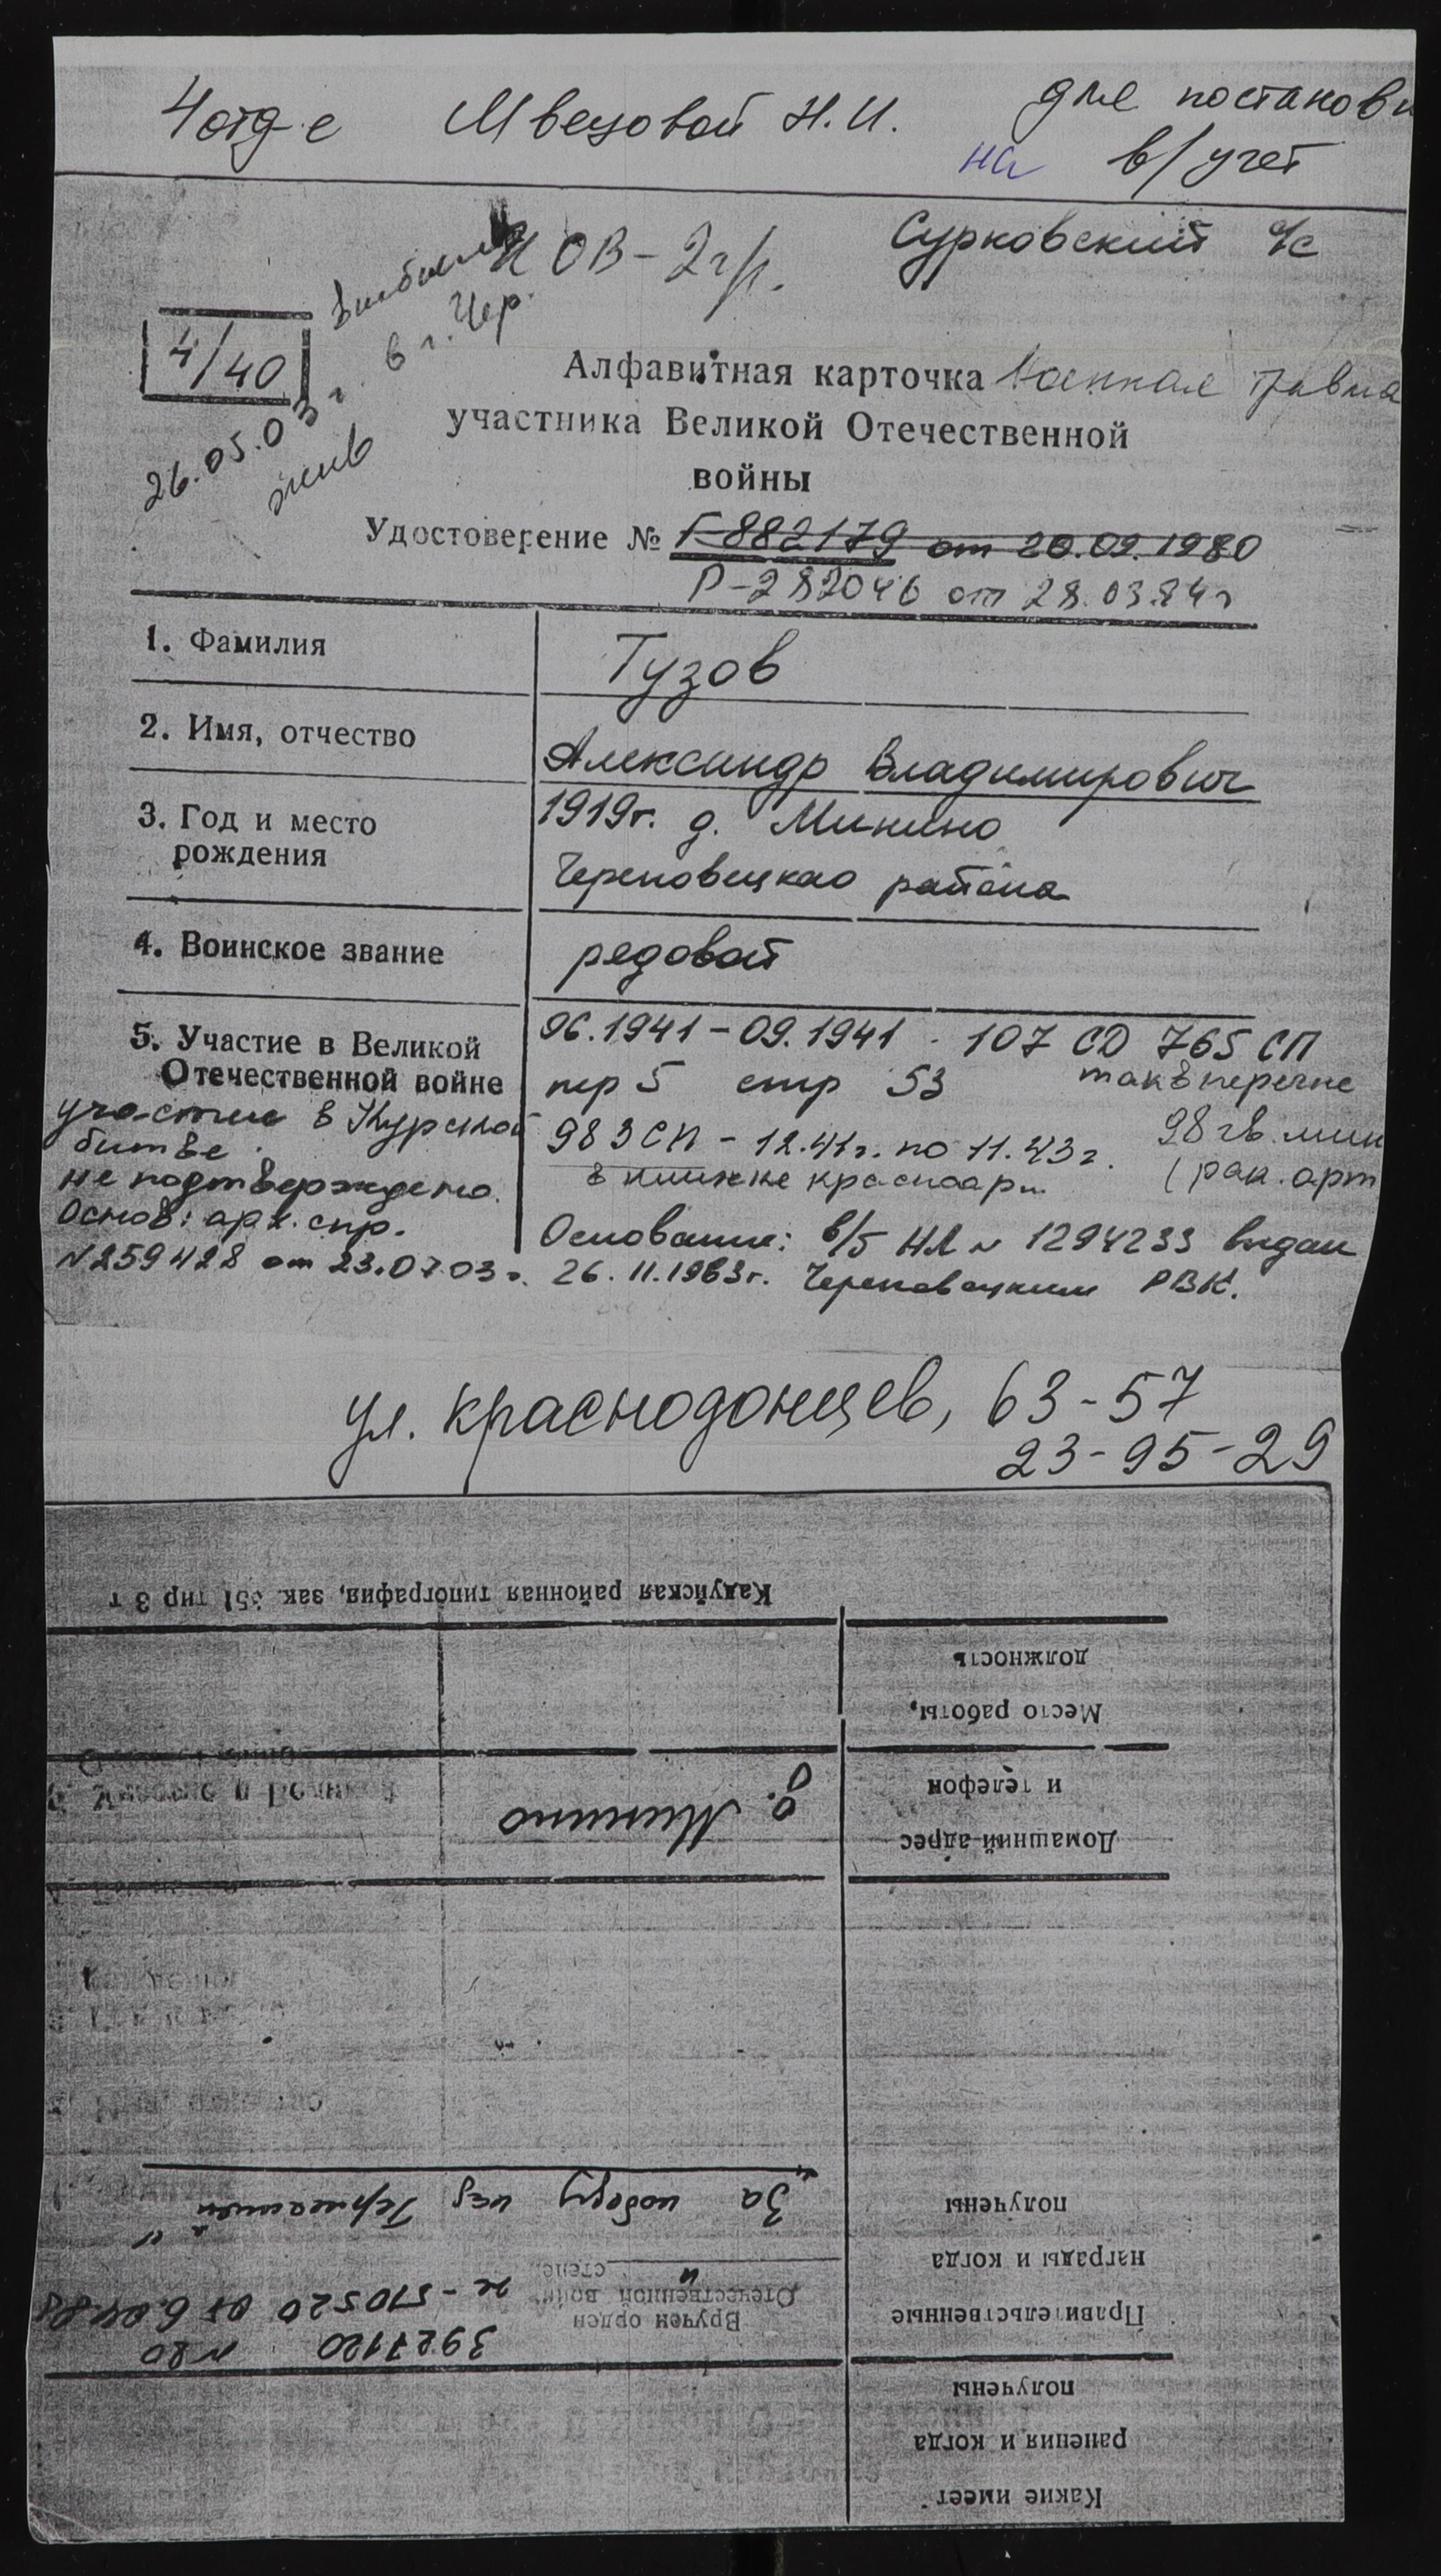 4 отд-е Швецовой Н.И. для постановк
на в/учет
ИОВ-2гр. Сурковский с/с
4/40
в г. Чер.
26.05.03 г.
жив
Алфавитная карточка Военная травма
участника Великой Отечественной
войны
Удостоверение № Г-882179 от 20.09.1980
Р-282046 от 28.03.84 г
1. Фамилия Тузов
2. Имя, отчество Александр Владимирович
3. Год и место рождения 1919г. д. Минино
Череповецкао района
4. Воинское звание редовой
5. Участие в Великой Отечественной войне 06.1941-09.1941 107 СД 765 СП
пер 5 стр 53 так в перечне
983 СП - 12.41г. по 11.43г. 98 гв. мин
в книжке красноарм. (рак. арт
участие в Курской
битве
не подтверждено.
Основ: арх. спр.
N259428 от 23.07.03г.
Основание: в/б НЛ N 1294233 выдан
26.11.1963г. Череповецким РВК.
ул. Краснодонцев, 63-57
23-95-29
Какие имеет
ранения и когда
получены
Правительственные
награды и когда
получены
3927120 N80
Вручен орден
Отечественной войн
II степе.
"За победу над Германией"
Домашний адрес
и телефон
д. Минино
Место работы,
должность
Кадуйская районная типография, зак. 351 тир 3 т